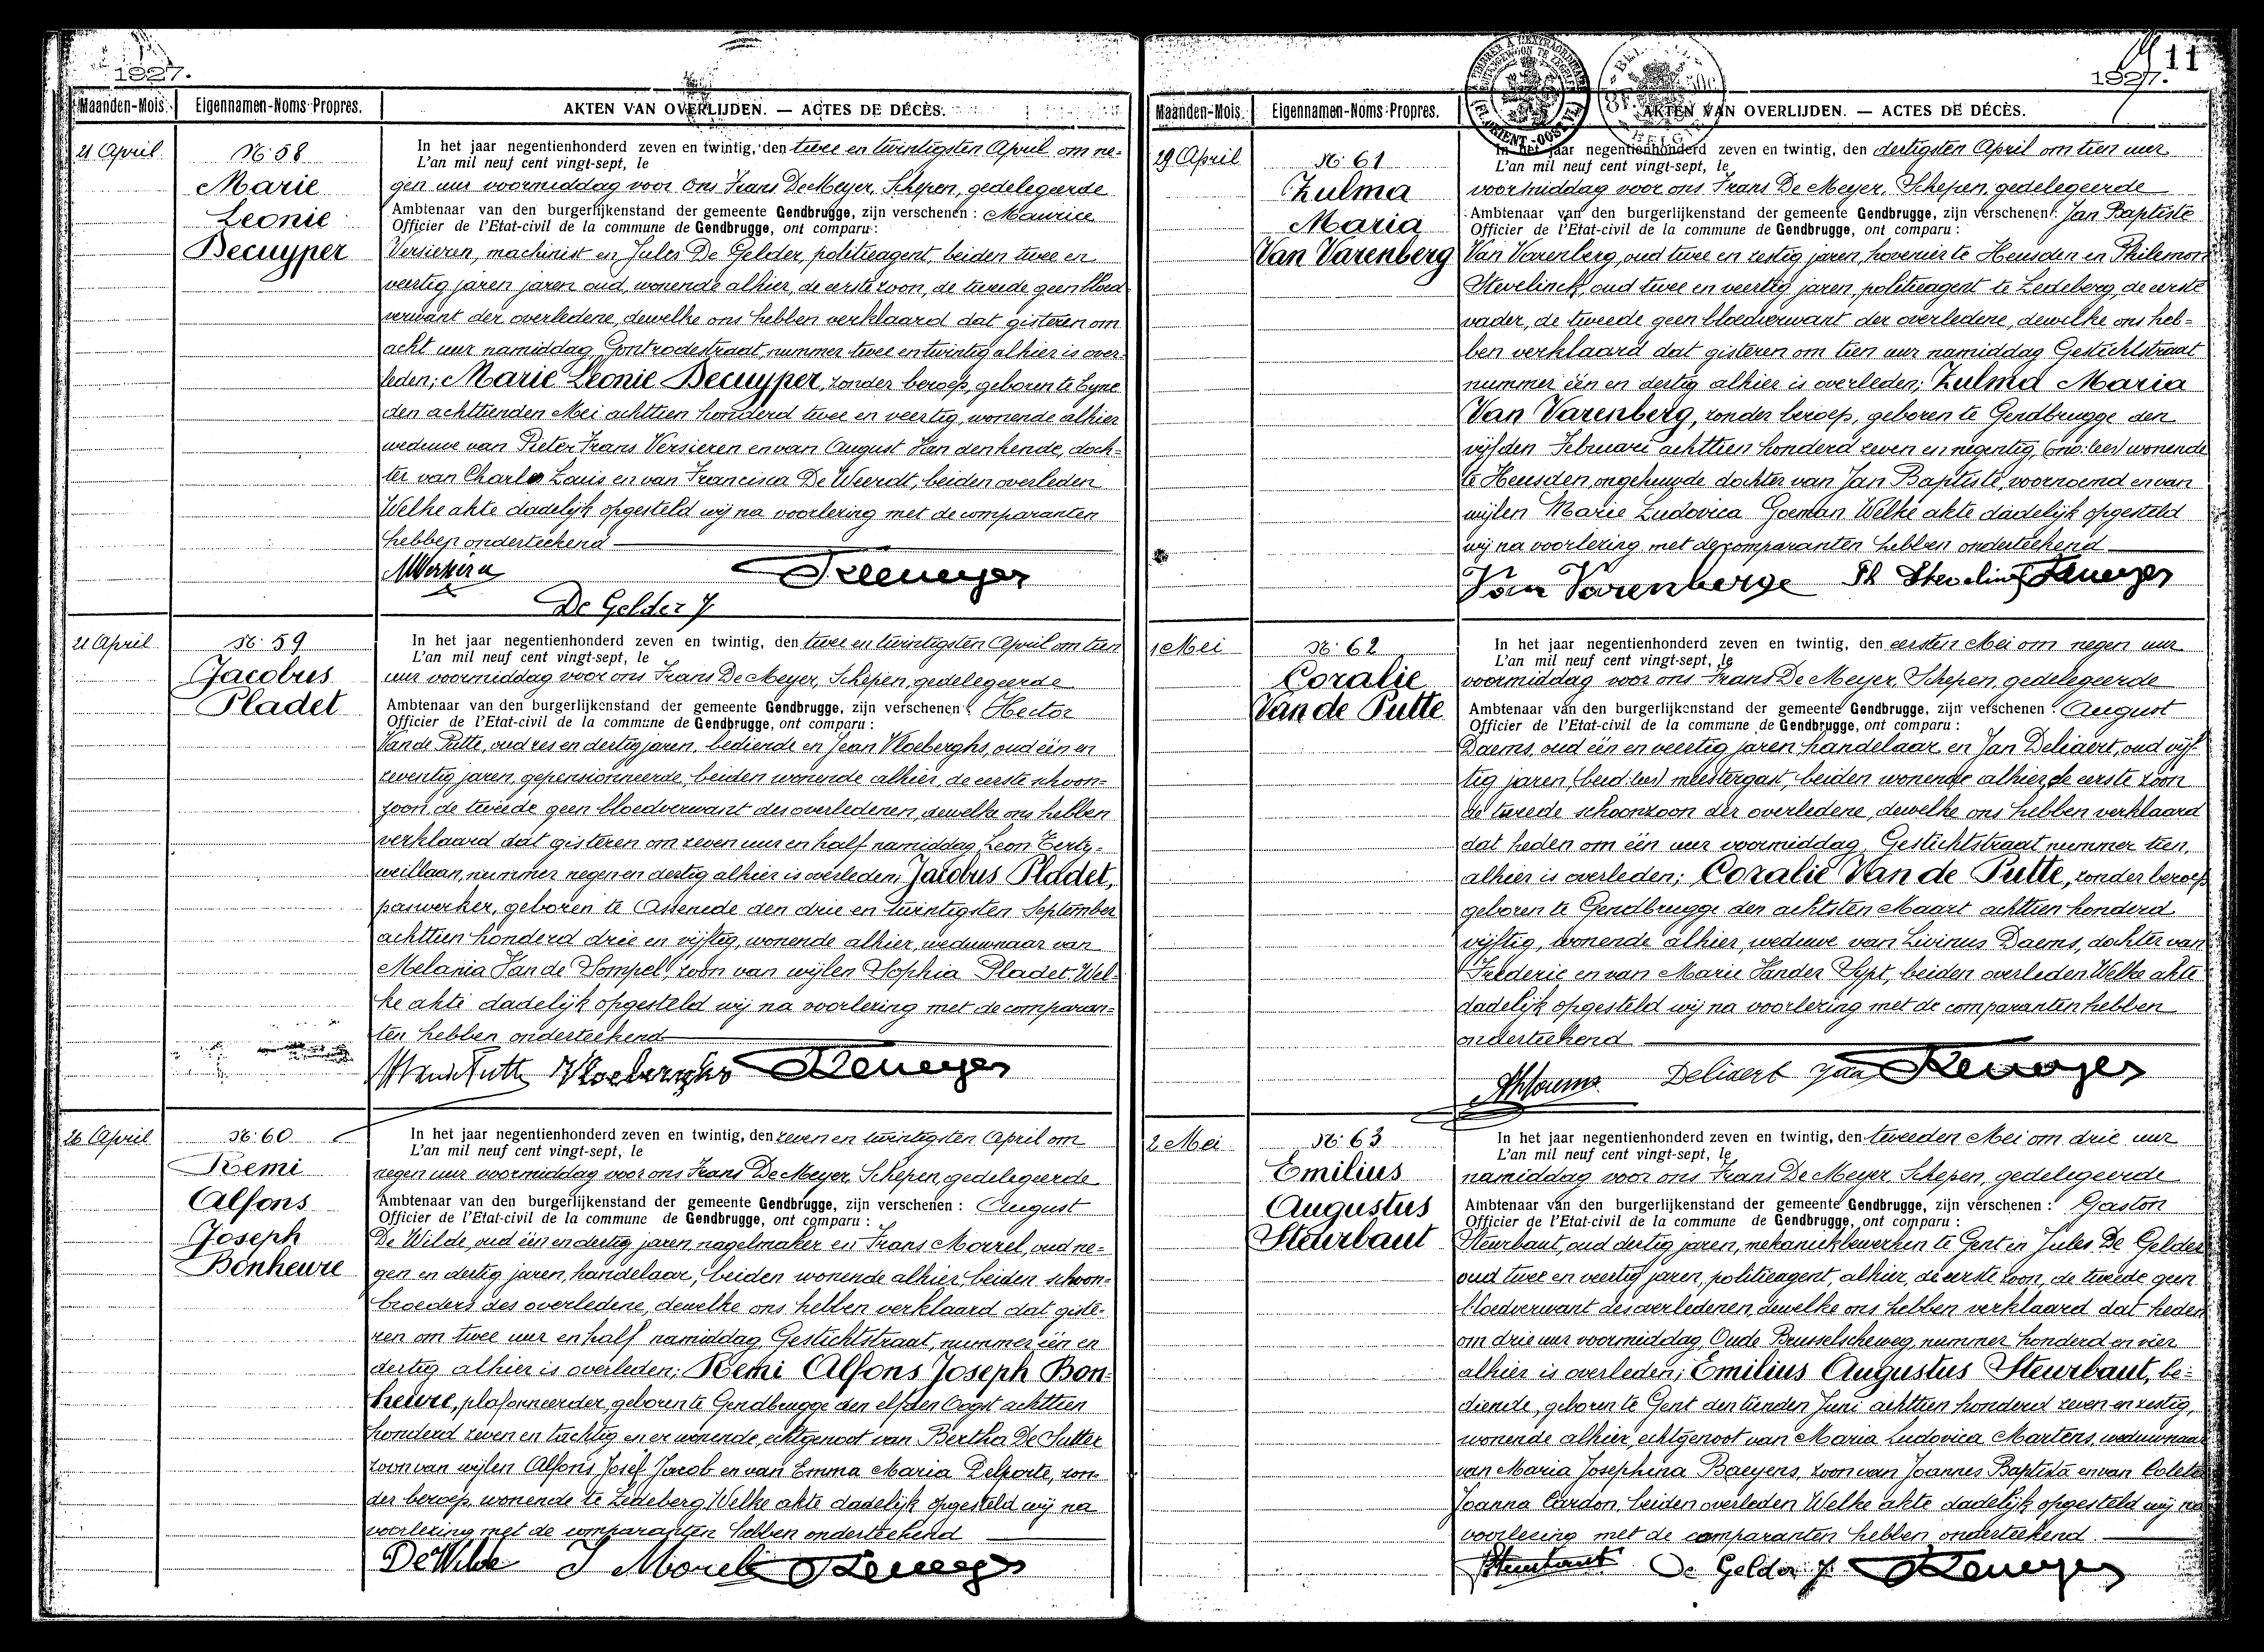 1927.
Maanden-Mois.
Eigennamen-Noms Propres.
AKTEN VAN OVERLIJDEN. — ACTES DE DÉCÈS.
21 April
No 58
Marie
Leonie
Decuyper
In het jaar negentienhonderd zeven en twintig, den twee en twintigsten April om ne-
L'an mil neuf cent vingt-sept, le
gen uur voormiddag voor ons Frans De Meyer, Schepen, gedelegeerde
Ambtenaar van den burgerlijkenstand der gemeente Gendbrugge, zijn verschenen : Maurice
Officier de l'Etat-civil de la commune de Gendbrugge, ont comparu :
Versieren, machinist en Jules De Gelder, politieagent, beiden twee en
veertig jaren jaren oud, wonende alhier, de eerste zoon, de tweede geen bloed
verwant der overledene, dewelke ons hebben verklaard dat gisteren om
acht uur namiddag, Gontrodestraat, nummer twee en twintig alhier is over-
leden; Marie Leonie Decuyper, zonder beroep, geboren te Eyne
den achttienden Mei achttien honderd twee en veertig, wonende alhier
weduwe van Pieter Frans Versieren en van August Van den hende, doch-
ter van Charles Louis en van Francisca De Weerdt, beiden overleden
Welke akte dadelijk opgesteld wij na voorlezing met de comparanten
hebben onderteekend
De Gelder J
21 April
No 59
Jacobus
Pladet
In het jaar negentienhonderd zeven en twintig, den twee en twintigsten April om tien
L'an mil neuf cent vingt-sept, le
uur voormiddag voor ons Frans De Meyer, Schepen, gedelegeerde
Ambtenaar van den burgerlijkenstand der gemeente Gendbrugge, zijn verschenen : Hector
Officier de l'Etat-civil de la commune de Gendbrugge, ont comparu :
Van de Putte, oud zes en dertig jaren, bediende en Jean Vloeberghs, oud één en
zeventig jaren, gepensionneerde, beiden wonende alhier, de eerste schoon-
zoon, de tweede geen bloedverwant des overledenen, dewelke ons hebben
verklaard dat gisteren om zeven uur en half namiddag, Leon Tertz-
weillaan, nummer negen en dertig alhier is overleden; Jacobus Pladet,
paswerker, geboren te Assenede den drie en twintigsten September
achttien honderd drie en vijftig, wonende alhier, weduwnaar van
Melania Van de Sompel, zoon van wijlen Sophia Pladet. Wel-
ke akte dadelijk opgesteld wij na voorlezing met de comparan-
ten hebben onderteekend
HVandePutte Vloeberghs
26 April
No 60
Remi
Alfons
Joseph
Bonheure
In het jaar negentienhonderd zeven en twintig, den zeven en twintigsten April om
L'an mil neuf cent vingt-sept, le
negen uur voormiddag voor ons Frans De Meyer, Schepen, gedelegeerde
Ambtenaar van den burgerlijkenstand der gemeente Gendbrugge, zijn verschenen : August
Officier de l'Etat-civil de la commune de Gendbrugge, ont comparu :
De Wilde, oud één en dertig jaren, nagelmaker en Frans Morrel, oud ne-
gen en dertig jaren, handelaar, beiden wonende alhier, beiden schoon-
broeders des overledene, dewelke ons hebben verklaard dat giste-
ren om twee uur en half namiddag, Gestichtstraat, nummer één en
dertig alhier is overleden; Remi Alfons Joseph Bon-
heure, plafonneerder, geboren te Gendbrugge den elfden Oogst achttien
honderd zeven en tachtig en er wonende, echtgenoot van Bertha De Sutter
zoon van wijlen Alfons Josef Jacob en van Emma Maria Delporte, zon-
der beroep, wonende te Ledeberg Welke akte dadelijk opgesteld wij na
voorlezing met de comparanten hebben onderteekend
De Wilde
11
1927.
Maanden-Mois.
Eigennamen-Noms Propres.
AKTEN VAN OVERLIJDEN. — ACTES DE DÉCÈS.
29 April
No 61
Zulma
Maria
Van Varenberg
In het jaar negentienhonderd zeven en twintig, den dertigsten April om tien uur
L'an mil neuf cent vingt-sept, le
voormiddag voor ons Frans De Meyer, Schepen, gedelegeerde
Ambtenaar van den burgerlijkenstand der gemeente Gendbrugge, zijn verschenen : Jan Baptiste
Officier de l'Etat-civil de la commune de Gendbrugge, ont comparu :
Van Varenberg, oud twee en zestig jaren, hovenier te Heusden en Philemon
Stevelinck, oud twee en veertig jaren, politieagent te Ledeberg, de eerste
vader, de tweede geen bloedverwant der overledene, dewelke ons heb-
ben verklaard dat gisteren om tien uur namiddag Gestichtstraat
nummer één en dertig alhier is overleden; Zulma Maria
Van Varenberg, zonder beroep, geboren te Gendbrugge den
vijfden Februari achttien honderd zeven en negentig, wonende
te Heusden, ongehuwde dochter van Jan Baptiste, voornoemd en van
wijlen Marie Ludovica Goeman Welke akte dadelijk opgesteld
wij na voorlezing met de comparanten hebben onderteekend
Van Varenberge Ph Stevelinck
1 Mei
No 62
Coralie
Van de Putte
In het jaar negentienhonderd zeven en twintig, den eersten Mei om negen uur
L'an mil neuf cent vingt-sept, le
voormiddag voor ons Frans De Meyer, Schepen, gedelegeerde
Ambtenaar van den burgerlijkenstand der gemeente Gendbrugge, zijn verschenen : August
Officier de l'Etat-civil de la commune de Gendbrugge, ont comparu :
Daems, oud één en veertig jaren, handelaar en Jan Deliaert, oud vijf-
tig jaren, meestergast, beiden wonende alhier, de eerste zoon
de tweede schoonzoon der overledene, dewelke ons hebben verklaard
dat heden om één uur voormiddag, Gestichtstraat nummer tien,
alhier is overleden; Coralie Van de Putte, zonder beroep
geboren te Gendbrugge den achtsten Maart achttien honderd
vijftig, wonende alhier, weduwe van Livinus Daems, dochter van
Frederic en van Marie Vander Sypt, beiden overleden Welke akte
dadelijk opgesteld wij na voorlezing met de comparanten hebben
onderteekend
Deliaert Jan
2 Mei
No 63
Emilius
Augustus
Steurbaut
In het jaar negentienhonderd zeven en twintig, den tweeden Mei om drie uur
L'an mil neuf cent vingt-sept, le
namiddag voor ons Frans De Meyer, Schepen, gedelegeerde
Ambtenaar van den burgerlijkenstand der gemeente Gendbrugge, zijn verschenen : Gaston
Officier de l'Etat-civil de la commune de Gendbrugge, ont comparu :
Steurbaut, oud dertig jaren, mekaniekbewerker te Gent en Jules De Gelder
oud twee en veertig jaren, politieagent, alhier, de eerste zoon, de tweede geen
bloedverwant des overledenen, dewelke ons hebben verklaard dat heden
om drie uur voormiddag, Oude Brusselscheweg, nummer honderd en vier
alhier is overleden; Emilius Augustus Steurbaut, be-
diende, geboren te Gent den tienden Juni achttien honderd zeven en zestig,
wonende alhier, echtgenoot van Maria Ludovica Martens, weduwnaar
van Maria Josephina Baeyens, zoon van Joannes Baptista en van Coleta
Joanna Cardon, beiden overleden Welke akte dadelijk opgesteld wij na
voorlezing met de comparanten hebben onderteekend.
Steurbaut De Gelder J.